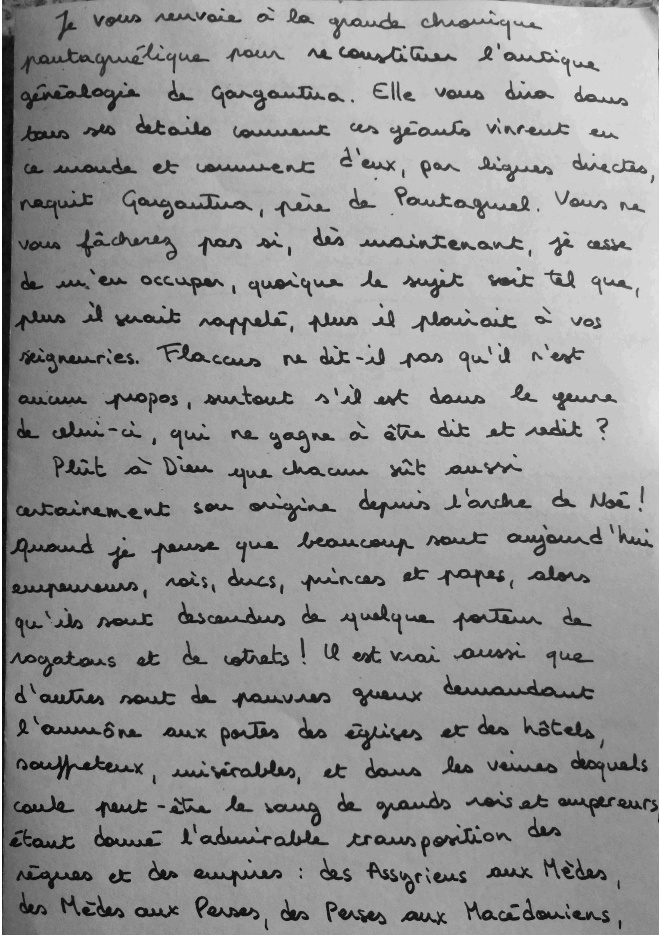 Je vous renvoie à la grande chronique
pantagruélique pour reconstituer l'antique
généalogie de Gargantua. Elle vous dira dans
tous ses détails comment ces géants vinrent en
ce monde et comment d'eux, par lignes directes,
naquit Gargantua, père de Pantagruel. Vous ne
vous fâcherez pas si, dès maintenant, je cesse
de m'en occuper, quoique le sujet soit tel que,
plus il serait rappelé, plus il plairait à vos
seigneuries. Flaccus ne dit-il pas qu'il n'est
aucun propos, surtout s'il est dans le genre
de celui-ci, qui ne gagne à être dit et redit ?
Plût à Dieu que chacun sût aussi
certainement son origine depuis l'arche de Noé !
Quand je pense que beaucoup sont aujourd'hui
empereurs, rois, ducs, princes et papes, alors
qu'ils sont descendus de quelque porteur de
rogatons et de cotrets ! Il est vrai aussi que
d'autres sont de pauvres gueux demandant
l'aumône aux portes des églises et des hôtels,
souffreteux, misérables, et dans les veines desquels
coule peut-être le sang de grands rois et empereurs,
étant donné l'admirable transposition des
règnes et des empires : des Assyriens aux Mèdes,
des Mèdes aux Perses, des Perses aux Macédoniens,